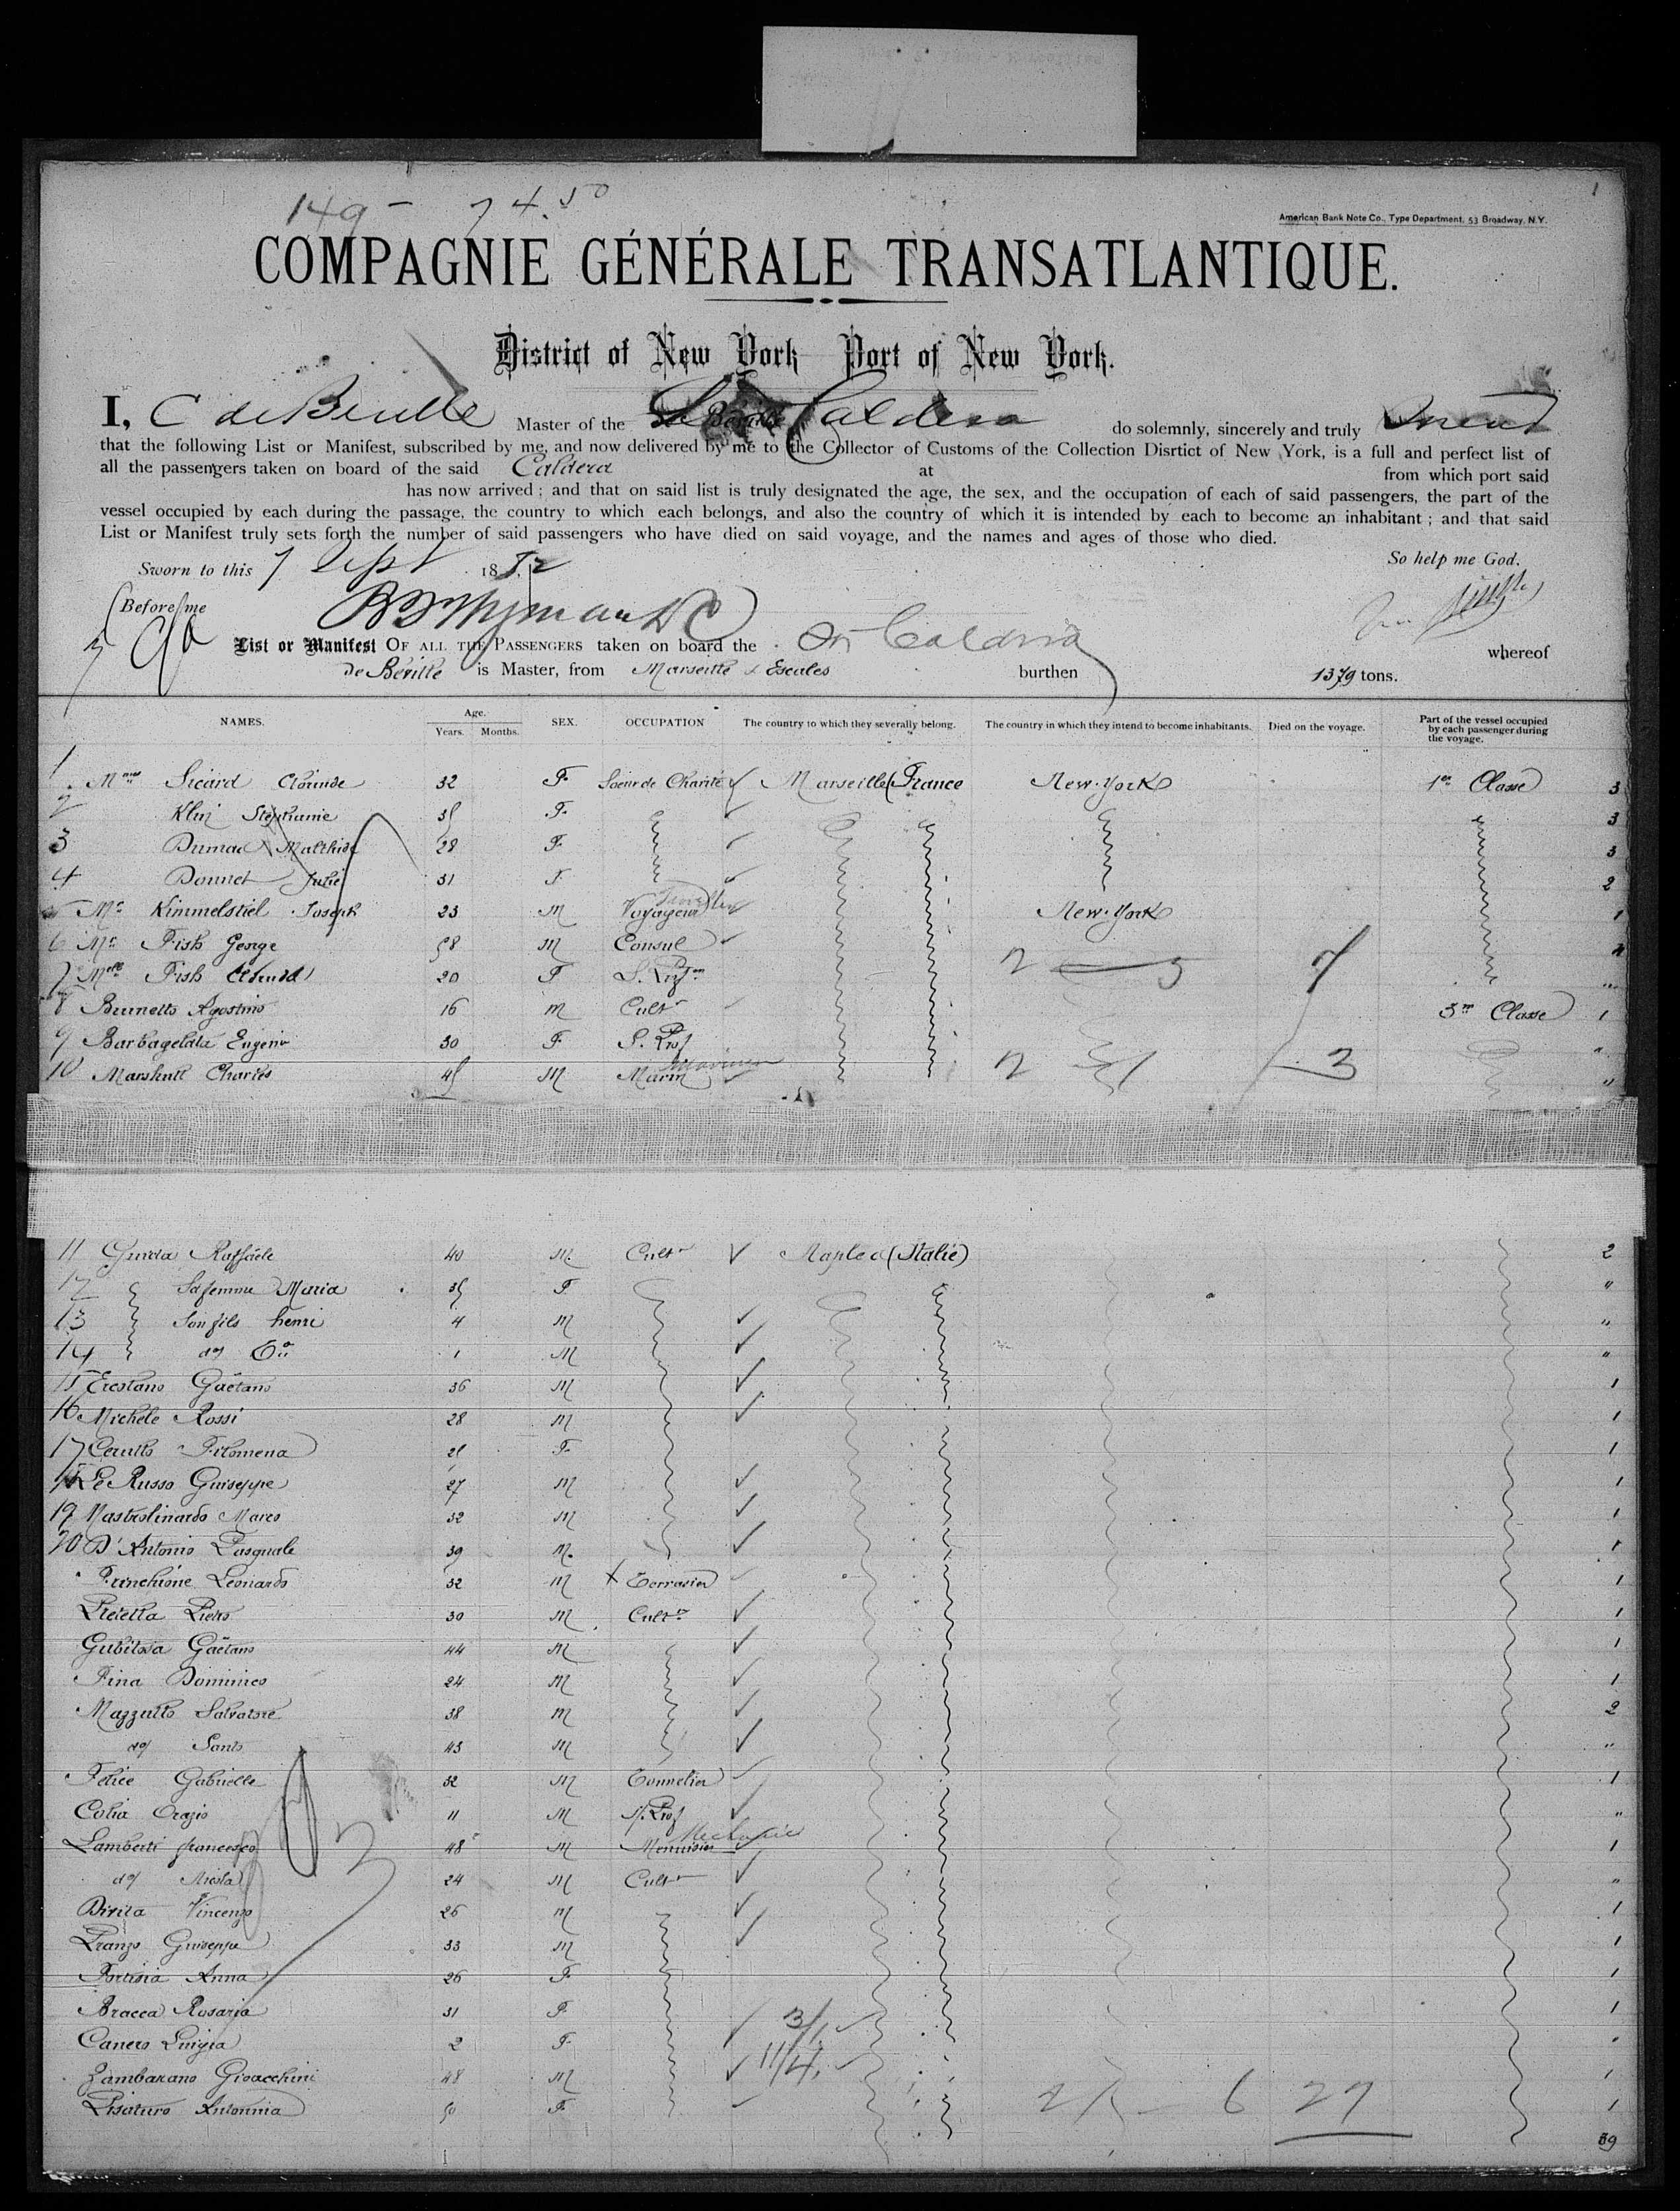 149 - 74.50
1
American Bank Note Co., Type Department, 53 Broadway, N.Y.
COMPAGNIE GÉNÉRALE TRANSATLANTIQUE.
District of New York Port of New York.
I, C de Beville Master of the Caldera do solemnly, sincerely and truly swear
that the following List or Manifest, subscribed by me, and now delivered by me to the Collector of Customs of the Collection Disrtict of New York, is a full and perfect list of
all the passengers taken on board of the said Caldera at from which port said
has now arrived ; and that on said list is truly designated the age, the sex, and the occupation of each of said passengers, the part of the
vessel occupied by each during the passage, the country to which each belongs, and also the country of which it is intended by each to become an inhabitant ; and that said
List or Manifest truly sets forth the number of said passengers who have died on said voyage, and the names and ages of those who died.
So help me God.
Sworn to this 7 Sept 1882
Before me
List or Manifest OF ALL THE PASSENGERS taken on board the Caldera whereof
de Béville is Master, from Marseille & Escales burthen 1379 tons.
NAMES. Age. Years. Months. SEX. OCCUPATION The country to which they severally belong. The country in which they intend to become inhabitants. Died on the voyage. Part of the vessel occupied by each passenger during the voyage.
1 Mmes Sicard Clorinde 32 F Soeur de Charité Marseille (France New-York 1re Classe 3
2 Klin Stéphanie 35 F 3
3 Mathide 28 F 3
4 Donnet Julie 31 F 2
5 Mr Kimmelstiel Joseph 23 M Voyageur New-York 1
6 Mr Fish George 58 M Consul
7 Melle Fish 20 F S. Prof on 2 5 7
8 Brunetto Agostino 16 M Cultr 3me Classe 1
9 Barbagelata Eugenia 30 F S. Prof "
10 Marshall Charles 45 M Marin 2 1 3 "
11 Guida Raffaele 40 M. Cultr Naples (Italie) 2
12 Sa femme Maria 35 F "
13 Son fils henri 4 M "
14 do 1 M "
15 Gaëtano 36 M 1
16 Michele Rossi 28 M 1
17 Cerullo Filomena F 1
18 Le Russo Guiseppe 27 M 1
19 Mastrolinardo Marco 32 M 1
20 D'Antonio Pasquale 39 M. 1
Leonardo 32 M Terrasier 1
Pietro 30 M Cultr 1
Gubitosa Gaëtano 44 M 1
Fina Dominico 24 M 1
Mazzullo Salvatore 38 M 2
do Santo 43 M "
Felice Gabrielle 32 M Tonnelier 1
Colia Orazio 11 M S. Prof "
Lamberti francesco 48 M Menuisier Mechanic 1
do Nicola 24 M Cultr "
Divita Vincenzo 26 M 1
Pranzo Guiseppe 33 M 1
Anna 26 F 1
Bracca Rosaria 31 F 3/1 1
Canero Luigia 2 F 11/4
Zambarano Gioacchini 48 M 1
Pisaturo Antonnia 50 F 21 - 6 27 1
39